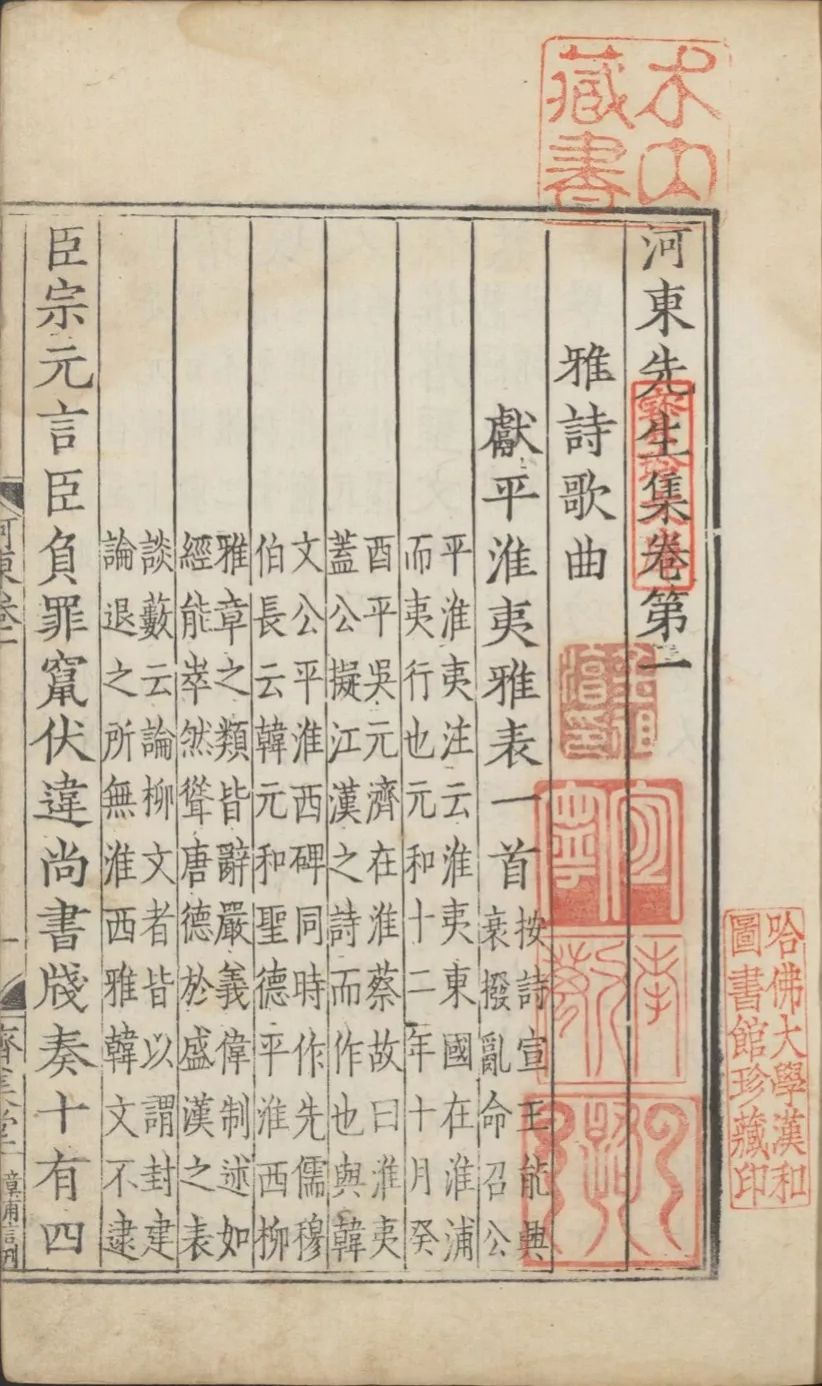 河東先生集卷第一
雅詩歌曲
獻平淮夷雅表一首
按詩宣王能興
衰撥亂命召公
平淮夷注云淮夷東國在淮浦
而夷行也元和十二年十月癸
酉平吳元濟在淮蔡故曰淮夷
蓋公擬江漢之詩而作也與韓
文公平淮西碑同時作先儒穆
伯長云韓元和聖德平淮西柳
雅章之類皆辭嚴義偉制述如
經能崒然聳唐德於盛漢之表
談藪云論柳文者皆以謂封建
論退之所無淮西雅韓文不逮
臣宗元言臣負罪竄伏違尚書牋奏十有四
木山
藏書
哈佛大學漢和
圖書館珍藏印